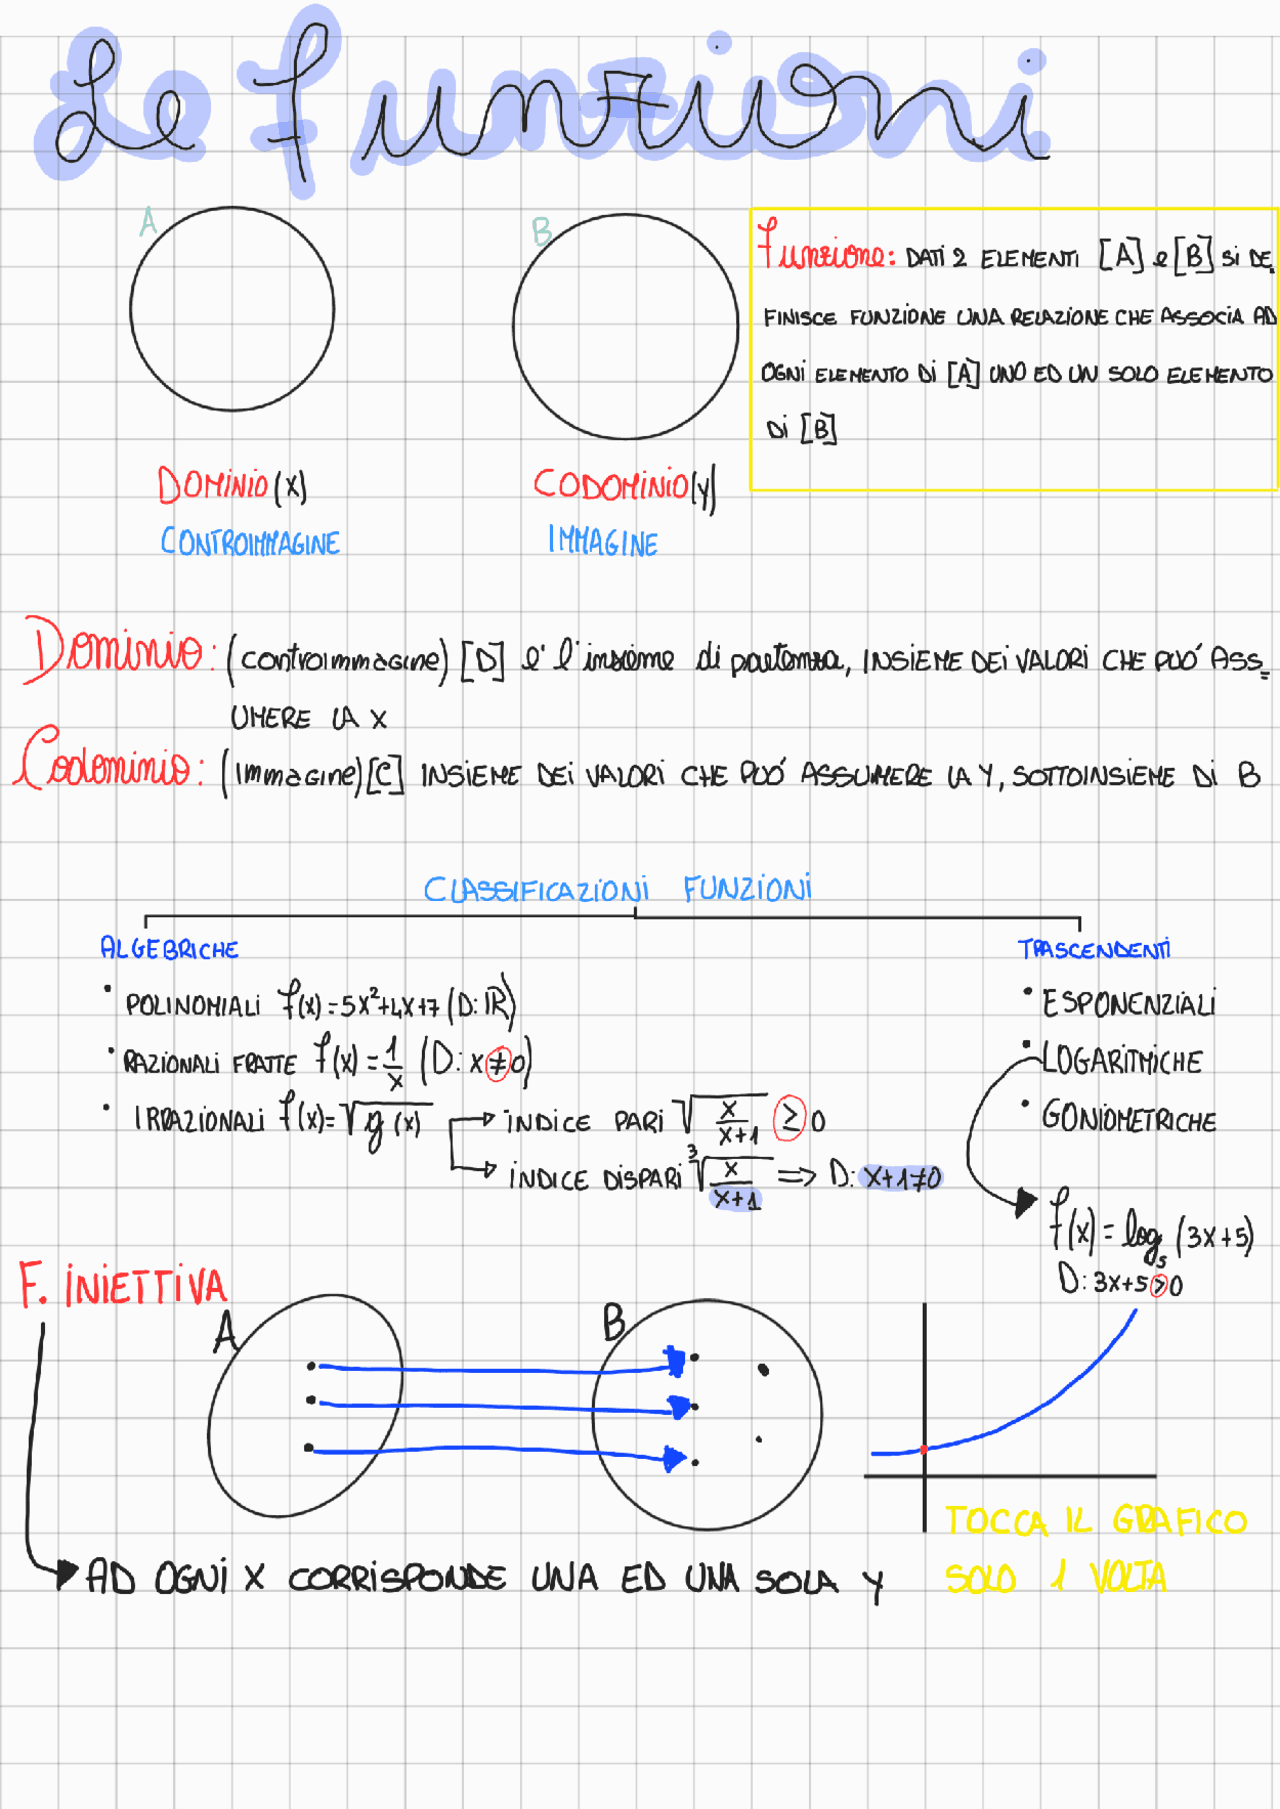 Le funzioni
A
B
Funzione: DATI 2 ELEMENTI [A] e [B] Si DE
FINISCE FUNZIONE UNA RELAZIONE CHE ASSOCIA AD
OGNI ELEMENTO Di [A] UNO ED UN SOLO ELEMENTO
Di [B]
DOMINIO (x)
CODOMINIO (y)
CONTROIMMAGINE
IMMAGINE
Dominio: (controimmagine) [D] e' l'insieme di partenza, INSIEME DEI VALORI CHE PUÓ ASS=
UMERE LA X
Codominio: (Immagine) [C] INSIEME DEI VALORI CHE PUÓ ASSUMERE LA Y, SOTTOINSIEME Di B
CLASSIFICAZIONI FUNZIONI
ALGEBRICHE
TRASCENDENTI
• POLINOMIALI f(x) = 5x²+4x+7 (D: IR)
• ESPONENZIALI
• RAZIONALI FRATTE f(x) = 1/x (D: x ≠ 0)
• LOGARITMICHE
• IRRAZIONALI f(x) = √g(x) → INDICE PARI √(x/(x+1)) ≥ 0
• GONIOMETRICHE
→ INDICE DISPARI ³√(x/(x+1)) => D: x+1≠0
f(x) = log₅ (3x+5)
D: 3x+5 > 0
F. INIETTIVA
A
B
TOCCA IL GRAFICO
SOLO 1 VOLTA
AD OGNI X CORRISPONDE UNA ED UNA SOLA Y